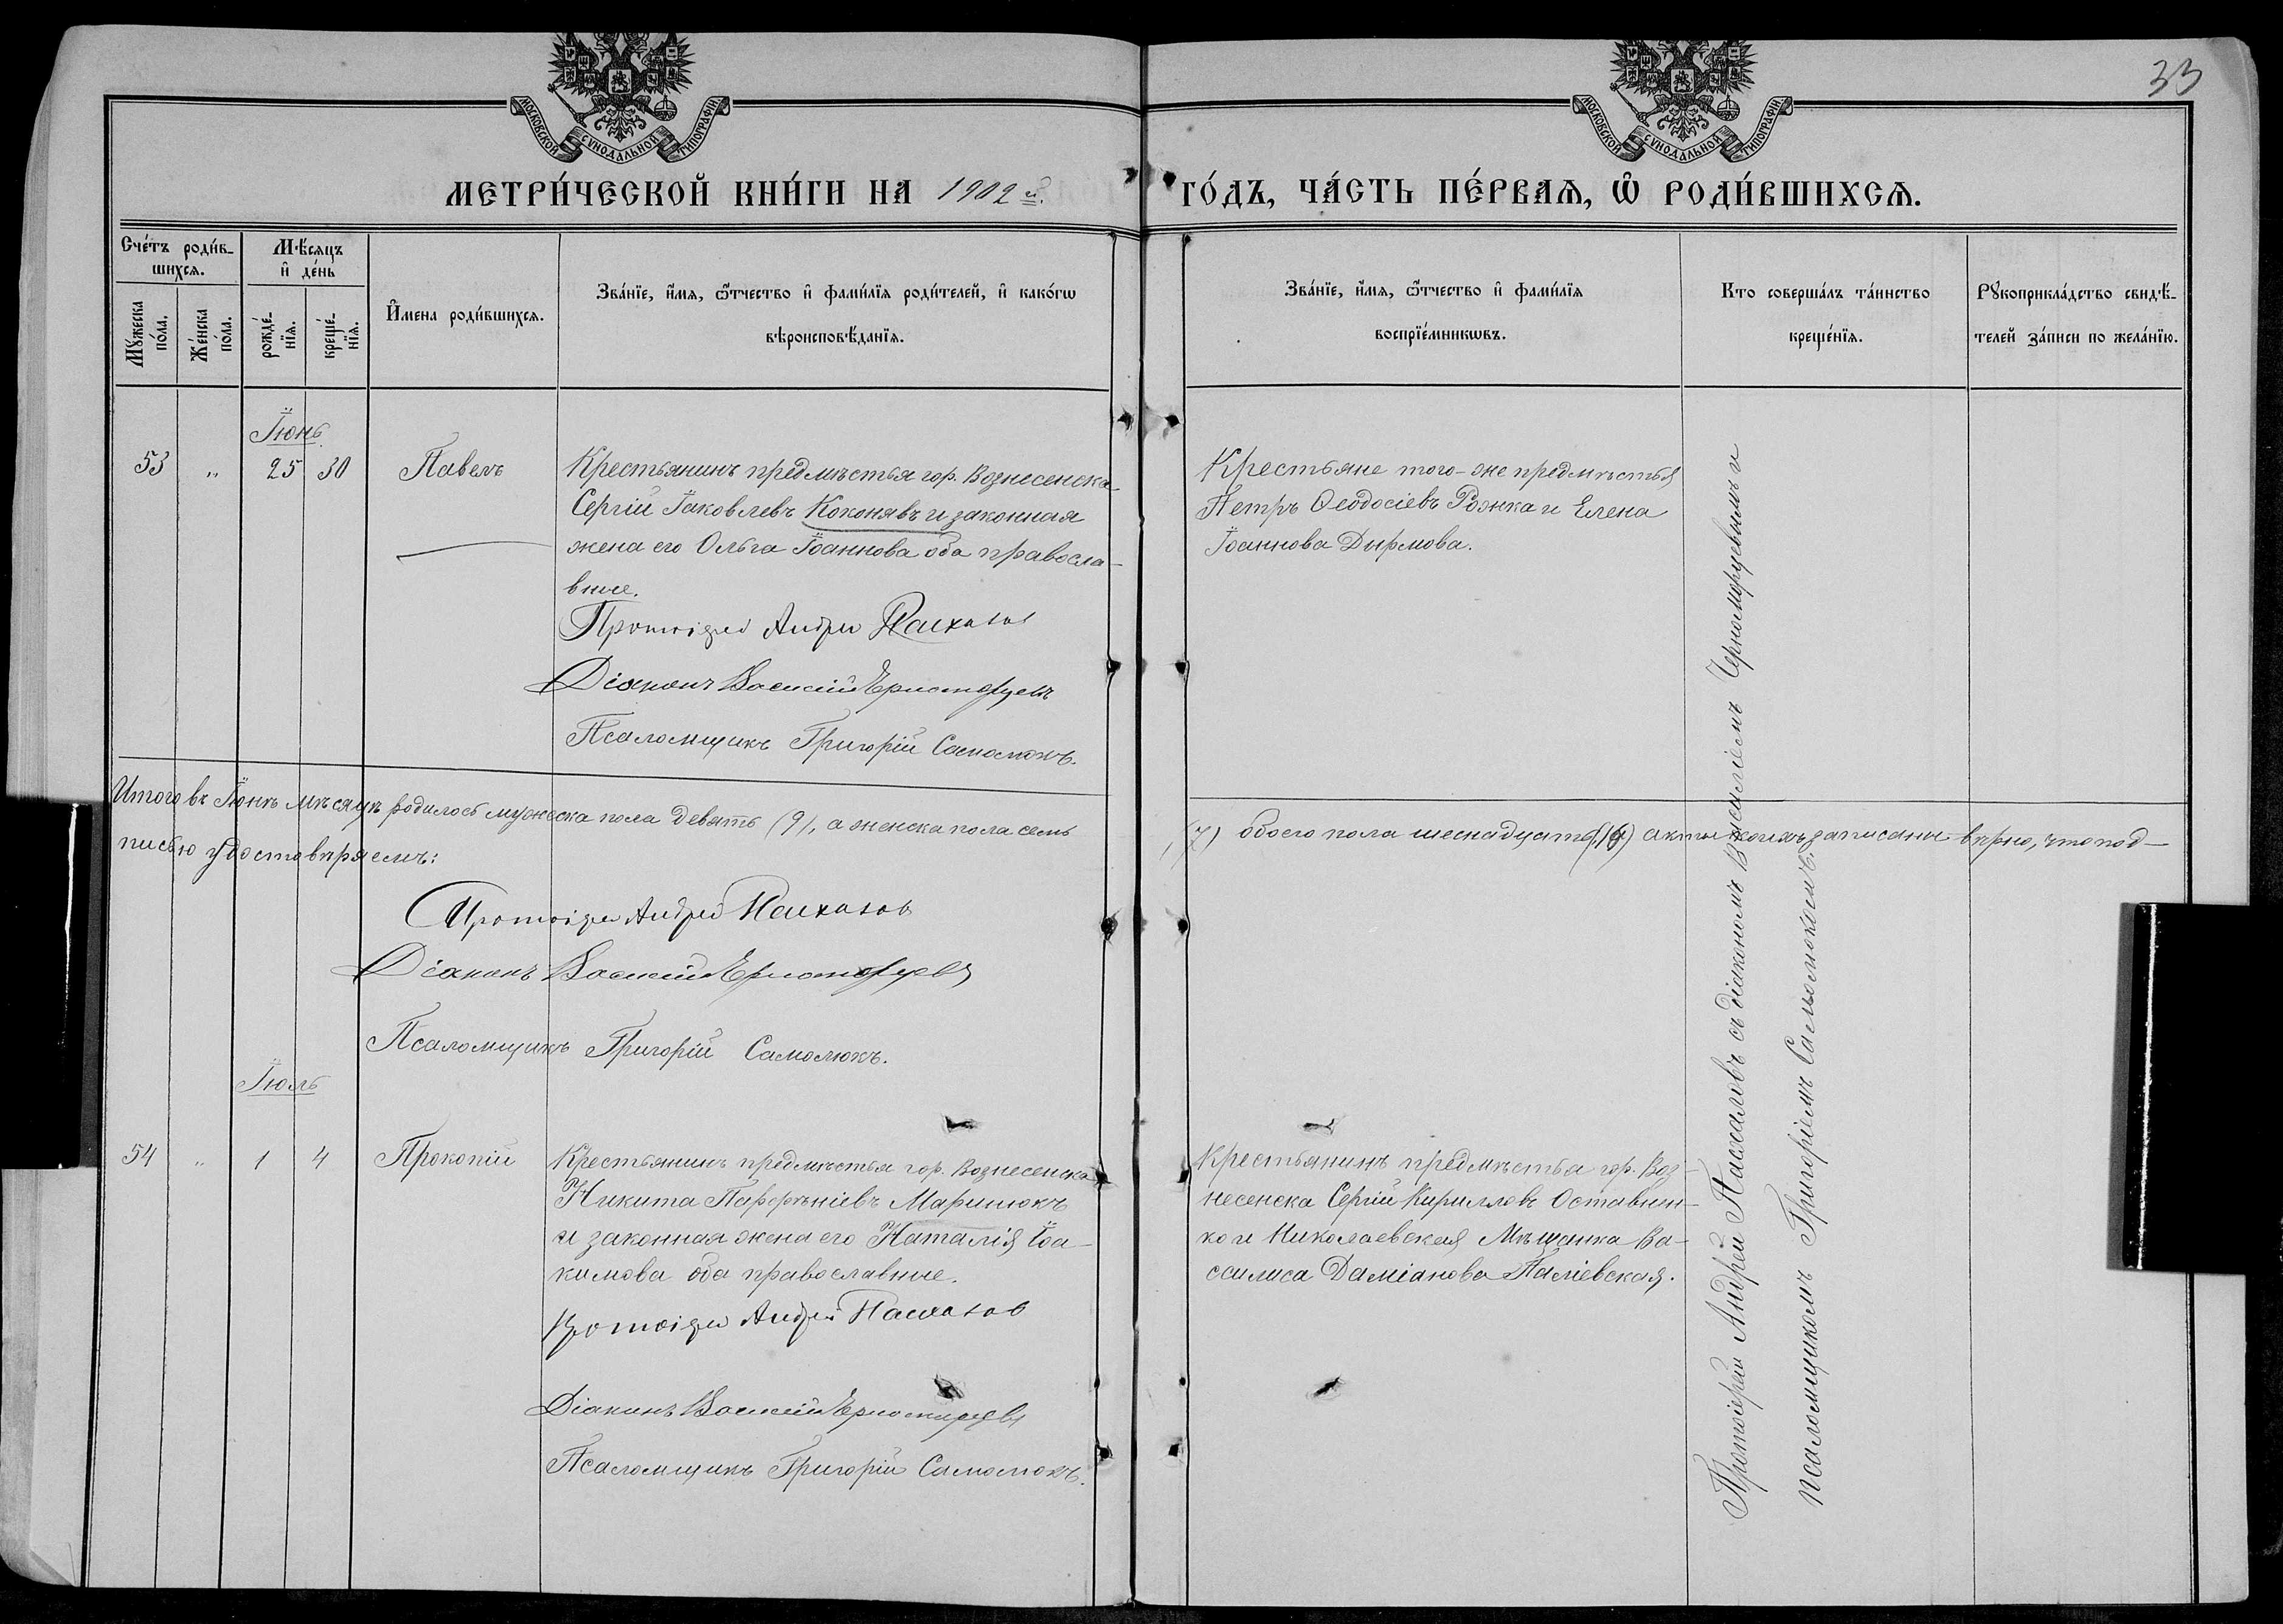 33
МОСКОВСКОЙ СѴНОДАЛЬНОЙ ТИПОГРАФІИ
МОСКОВСКОЙ СѴНОДАЛЬНОЙ ТИПОГРАФІИ
МЕТРИ́ЧЕСКОЙ КНИ́ГИ НА 1902 й.
ГО́ДЪ, ЧА́СТЬ ПЕ́РВАЯ, Ѡ҆ РОДИ́ВШИХСЯ.
Сче́тъ роди́в-
шихся.
Мꙋ́жеска
по́ла.
Же́нска
по́ла.
Мѣ́сяцъ
и҆ де́нь
рожде́-
нїя.
креще́-
нїя.
И҆́мена роди́вшихся.
Зва́нїе, и҆́мя, ѻ҆́тчество и҆ фами́лїя роди́телей, и҆ како́гѡ
вѣроисповѣ́данїя.
Зва́нїе, и҆́мя, ѻ҆́тчество и҆ фами́лїя
воспрїе́мникѡвъ.
Кто соверша́лъ та́инство
креще́нїя.
Рꙋкоприкла́дство свидѣ́-
телей за́писи по жела́нїю.
Іюнь
53 „ 25 30 Павелъ
Крестьянинъ предмѣстья гор. Вознесенска
Сергій Іаковлевъ Коконявъ и законная
жена его Ольга Іоаннова оба правосла-
вные.
Протоіерей Андрей Пасхаловъ
Діаконъ Василій Черноморцевъ
Псаломщикъ Григорій Самолюкъ.
Крестьяне того-же предмѣстья
Петръ Ѳеодосіевъ Рожка и Елена
Іоаннова Дырмова.
Итого въ Іюнѣ мѣсяцѣ родилось мужеска пола девять (9), а женска пола семь
(7) обоего пола шеснадцать (16) акты коихъ записаны вѣрно, что под-
писью удостовѣряемъ:
Протоіерей Андрей Пасхаловъ
Діаконъ Василій Черноморцевъ
Псаломщикъ Григорій Самолюкъ.
Іюль
54 „ 1 4 Прокопій
Крестьянинъ предмѣстья гор. Вознесенска
Никита Парфѣніевъ Маринюкъ
и законная жена его Наталія Іоа-
кимова оба православные.
Протоіерей Андрей Пасхаловъ
Діаконъ Василій Черноморцевъ
Псаломщикъ Григорій Самолюкъ.
Крестьянинъ предмѣстья гор. Воз-
несенска Сергій Кирилловъ Оставнен-
ко и Николаевская Мѣщанка Ва-
ссилиса Даміанова Паліевская.
Протоіерей Андрей Пасхаловъ съ діакономъ Василіемъ Черноморцевымъ и
псаломщикомъ Григоріемъ Самолюкомъ.